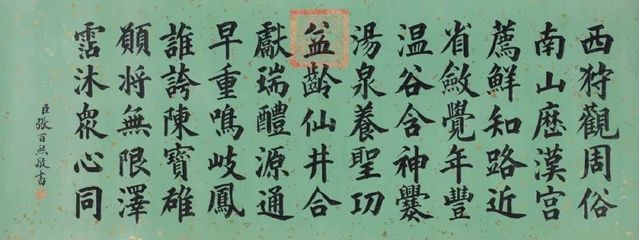 西狩觀周俗
南山厯漢宮
薦鮮知路近
省斂覺年豐
温谷含神爨
湯泉養聖功
益齡仙井合
獻瑞醴源通
早重鳴岐鳳
誰誇陳寶雄
願将無限澤
霑沐衆心同
臣張百熙敬書